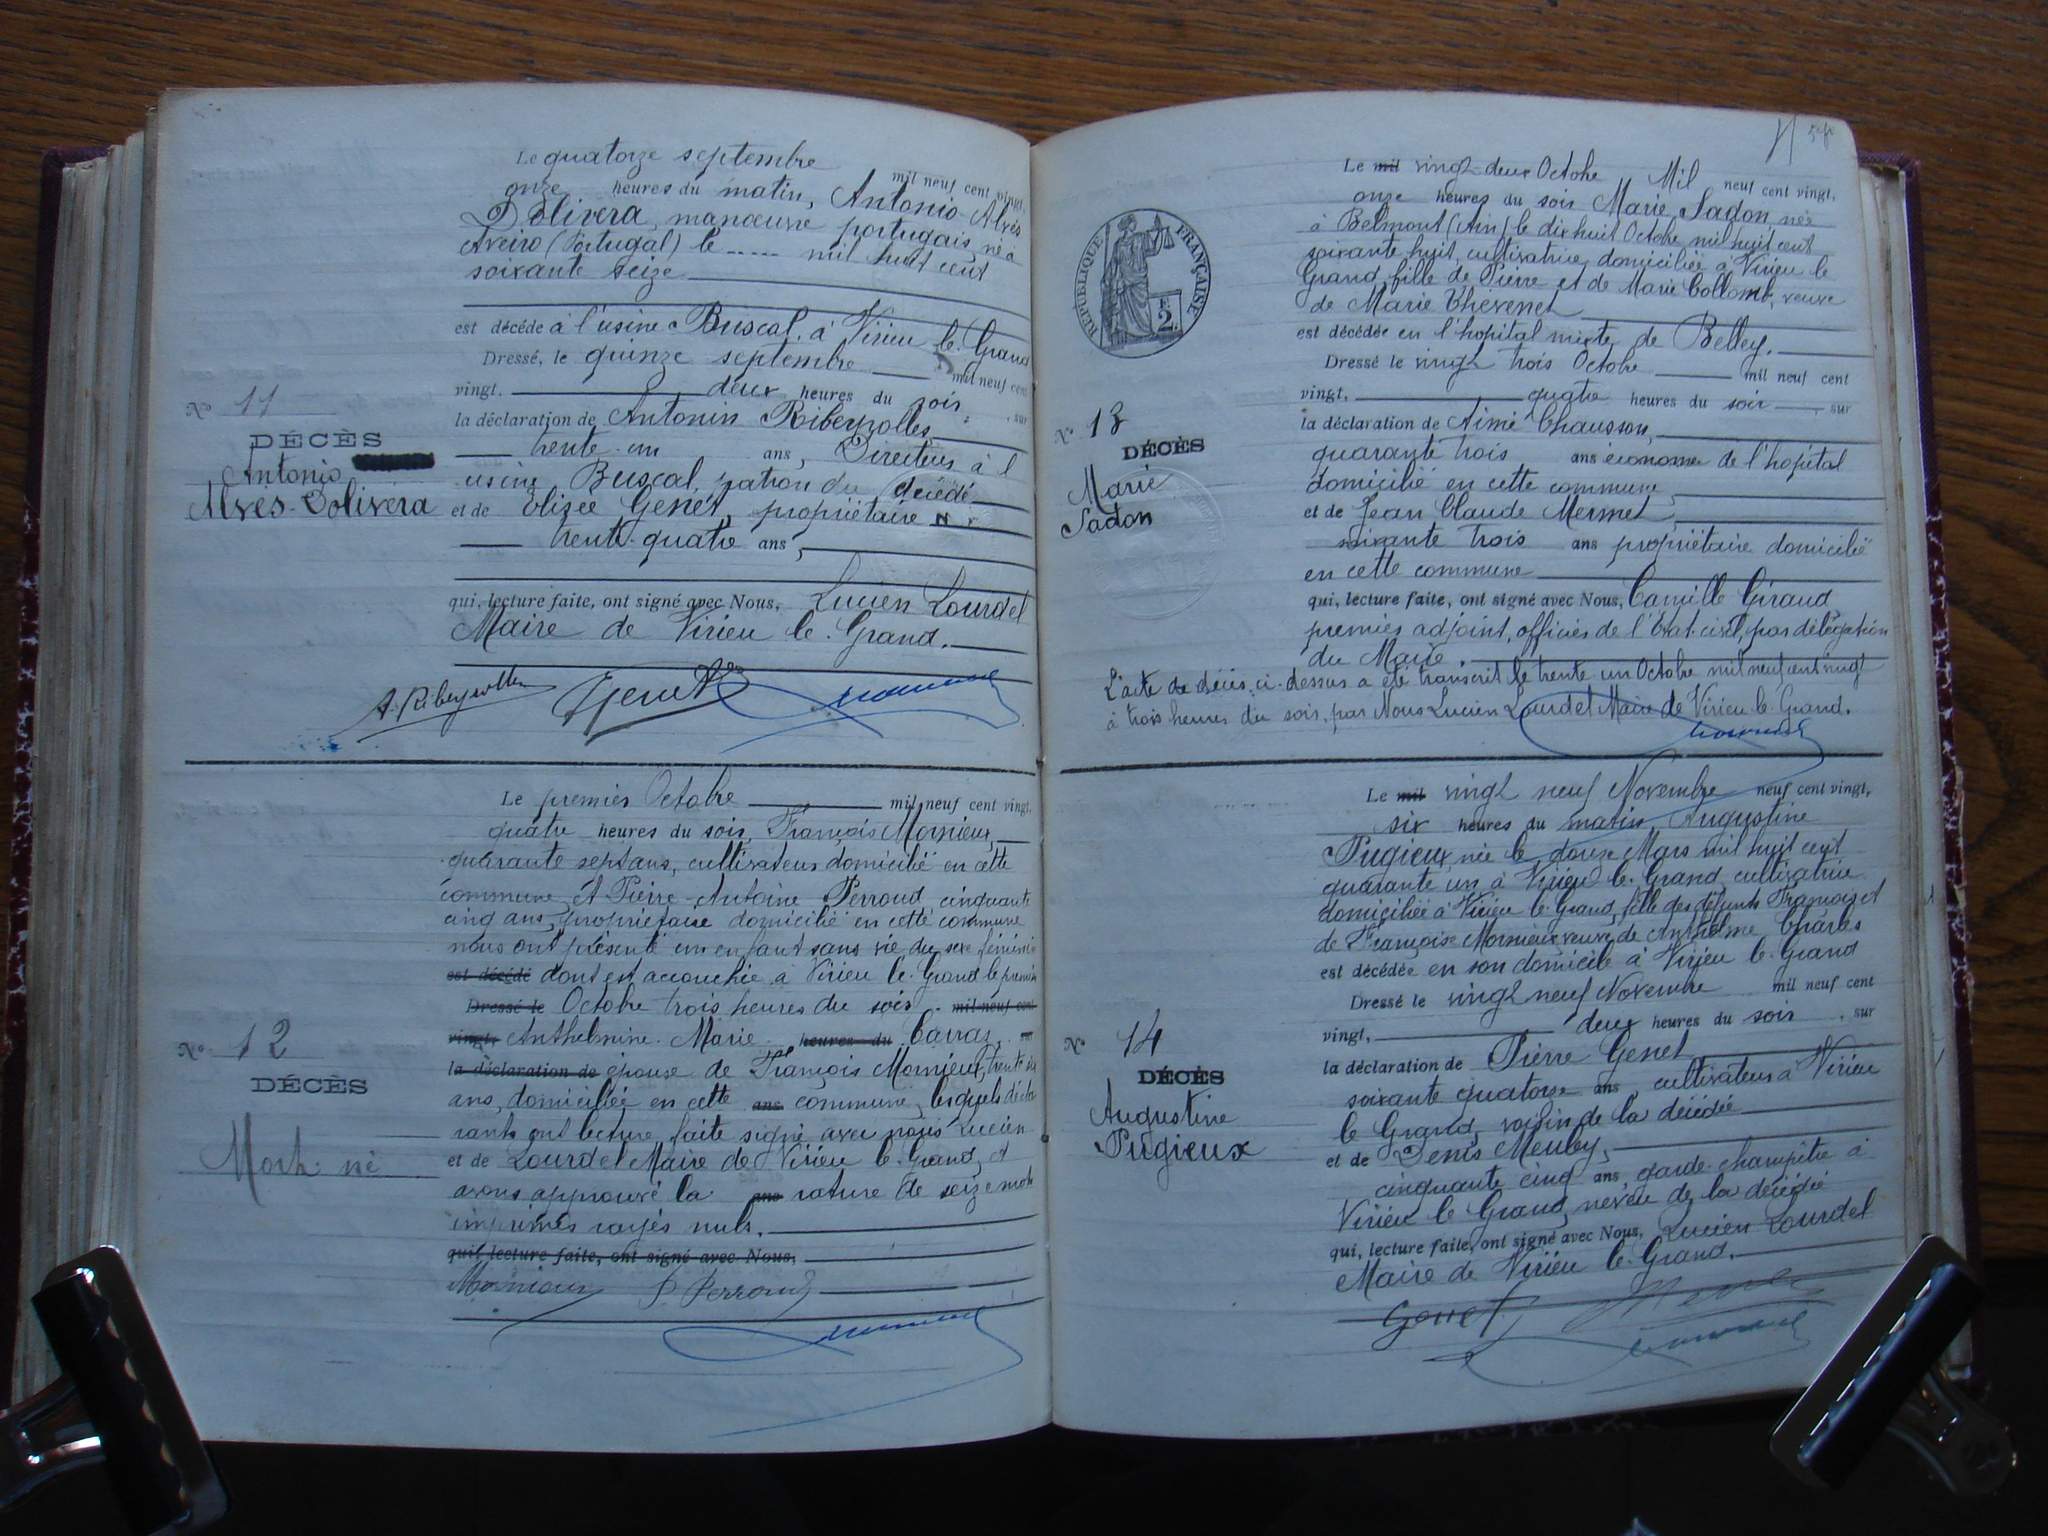 Le quatorze septembre mil neuf cent vingt,
onze heures du matin, Antonio Alvès
Dolivera, manœuvre portugais, né à
Aveiro (Portugal) le ...... mil huit cent
soixante seize
est décédé à l'usine Buscal, à Virieu le Grand
Dressé, le quinze septembre mil neuf cent
vingt. deux heures du soir, sur
la déclaration de Antonin Ribeyrolles,
trente un ans, Directeur à l
usine Buscal, patron du décédé
et de Elizée Genet, propriétaire
trente-quatre ans,
qui, lecture faite, ont signé avec Nous, Lucien Lourdel
Maire de Virieu le Grand.
A. Ribeyrolles Genet
N° 11
DÉCÈS
Antonio
Alves-Dolivera
Le premier Octobre mil neuf cent vingt,
quatre heures du soir, François Mornieux,
quarante sept ans, cultivateur domicilié en cette
commune, et Pierre-Antoine Perroud, cinquante
cinq ans, propriétaire domicilié en cette commune
nous ont présenté un enfant sans vie du sexe féminin
est décédé dont est accouchée à Virieu le Grand le premier
Dressé le Octobre trois heures du soir. mil neuf cent
vingt, Anthelmine Marie heures du Carraz, sur
la déclaration de épouse de François Mornieux, trente six
ans, domiciliée en cette ans commune, lesquels décla
rants ont lecture faite signé avec nous Lucien
et de Lourdel Maire de Virieu le Grand, et
avons approuvé la ans rature de seize mots
imprimés rayés nuls.
qui, lecture faite, ont signé avec Nous,
Mornieux P Perroud
N° 12
DÉCÈS
Mort né
Le mil vingt deux Octobre Mil neuf cent vingt,
onze heures du soir Marie Sadon, née
à Belmont (Ain) le dix huit Octobre mil huit cent
soixante huit, cultivatrice, domiciliée à Virieu le
Grand, fille de Pierre et de Marie Collomb, veuve
de Marie Thévenet
est décédée en l'hopital mixte de Belley.
Dressé le vingt trois Octobre mil neuf cent
vingt, quatre heures du soir, sur
la déclaration de Aimé Chausson,
quarante trois ans économe de l'hopital
domicilié en cette commune,
et de Jean Claude Mermet,
soixante trois ans propriétaire domicilié
en cette commune
qui, lecture faite, ont signé avec Nous, Camille Giraud
premier adjoint, officier de l'Etat-civil, par délégation
du Maire.
L'acte de décès ci-dessus a été transcrit le trente un Octobre mil neuf cent vingt
à trois heures du soir, par Nous Lucien Lourdel Maire de Virieu le Grand.
RÉPUBLIQUE FRANÇAISE
2
N° 13
DÉCÈS
Marie
Sadon
Le mil vingt neuf Novembre neuf cent vingt,
six heures du matin, Augustine
Pugieux, née le douze Mars mil huit cent
quarante un à Virieu le Grand, cultivatrice
domiciliée à Virieu le Grand, fille des défunts François et
de Françoise Mornieux, veuve de Anthelme Charles
est décédée en son domicile à Virieu le Grand
Dressé le vingt neuf Novembre mil neuf cent
vingt, deux heures du soir, sur
la déclaration de Pierre Genet
soixante quatorze ans, cultivateur à Virieu
le Grand, voisin de la décédée
et de Denis Meuley,
cinquante cinq ans, garde-champêtre à
Virieu le Grand, neveu de la décédée
qui, lecture faite, ont signé avec Nous, Lucien Lourdel
Maire de Virieu le Grand.
Genet
N° 14
DÉCÈS
Augustine
Pugieux